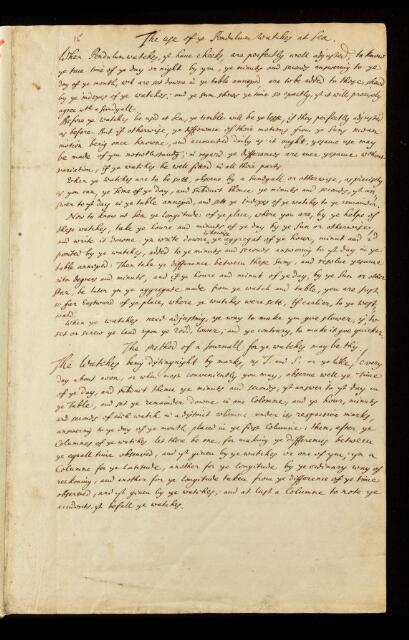 The use of ye Pendulum Watches at Sea.
When Pendulum watches, yt have checks, are perfectly well adjusted; to know
ye true time of ye day or night by you, ye minutes and seconds answering to ye
day of ye month, wch are set downe in ye table annexed are to be added to those, shewd
by ye indexes of ye watches; and ye sum shews ye time so exactly, yt it will precisely
agree wth a sundyall.
Before ye watches be used at sea, ye trouble will be ye lesse, if they perfectly adjusted
as before. But if otherwise, ye difference of their motions from ye Suns mean
motion being once knowne, and accounted daily as it ought, yesame use may
be made of ym notwithstanding; in regard ye differences are ever yesame without
variation, if ye watches be well fixed in all their parts.
When ye watches are to be sett, observe by a sundyall or otherwise, as precisely
as you can, ye time of ye day, and substract thence ye minutes and seconds, yt an
swer to yt day in ye table annexed, and sett ye indexes of ye watches to ye remainder.
Now to know at Sea ye longitude of ye place, where you are, by ye helpe of
these watches, take ye houre and minute of ye day by ye sun or otherwise,
and write it downe. yn write downe ye aggregat of ye hour, minut and
pointed by ye watches, added to ye minuts and seconds answering to yt day in ye
table annexed: Then take ye difference between these sums, and resolve yesame
into degrees and minuts, and if ye houre and minut of ye day, by ye sun or other
star, be later yn ye aggregate made from ye watch and table, you are just
so far Eastward of ye place, where ye watches were sett, if earlier, to ye west
ward.
When ye watches need adjusting, ye way to make ym goe slower, is, to
set or screw ye lead upon ye rod, lower; and ye contrary, to make it goe quicker.
The method of a Journall for ye watches may be this,
The Watches being distinguisht by marks, as T. and S. or ye like, every
day about noon, or when most conveniently you may, observe well ye time
of ye day, and substract thence ye minuts and seconds, yt answer to yt day in
ye Table, and set ye remainder downe in one Columne, and ye hour, minuts
and seconds of each watch in a distinct columne under its respective marks,
answering to ye day of ye month placed in ye first Columne: then, after ye
Columnes of ye watches let there be one, for marking ye differences between
ye equall time observed, and yt given by ye watches or one of ym; yn a
Columne for ye Latitude, another for ye longitude by ye ordinary way of
reckoning; and another for ye longitude taken from ye difference of ye time
observed, and yt given by ye watches; and at last a Columne to note ye
accidents yt befall ye watches.